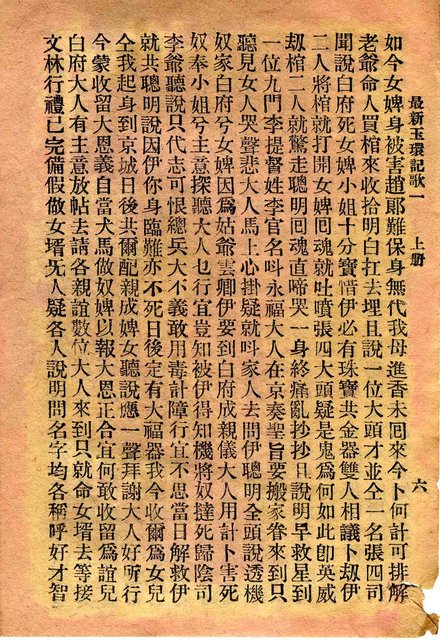 最新玉環記歌一　上册　六
如今女婢身被害趙郎難保身無代我母進香未囘來今卜何計可排解
老爺命人買棺來收拾明白扛去埋且說一位大頭才並仝一名張四司
聞說白府死女婢小姐十分寶惜伊必有珠寶共金器雙人相議卜刼伊
二人將棺就打開女婢囘魂就吐噴張四大頭疑是鬼爲何如此卽英威
刼棺二人就驚走聰明囘魂直啼哭一身終痛亂抄抄且說明早救星到
一位九門李提督姓李官名叫永福大人在京奏聖旨要搬家眷來到只
聽見女人哭聲悲大人馬上心掛疑就叫家人去問伊聰明全頭說透機
奴家白府兮女婢因爲姑爺雲卿伊要到白府成親儀大人用計卜害死
奴奉小姐兮主意探聽大人乜行宜豈知被伊得知機將奴撻死歸陰司
李爺聽說只代志可恨總兵大不義敢用毒計障行宜不思當日解救伊
就共聰明說因伊你身臨難亦不死日後定有大福器我今收爾爲女兒
仝我起身到京城日後共爾配親成婢女聽說應一聲拜謝大人好所行
今蒙收留大恩義自當犬馬做奴婢以報大恩正合宜何敢收留爲誼兒
白府大人有主意放帖去請各親誼數位大人來到只就命女壻去等接
文林行禮已完備假做女壻旡人疑各人說明問名字均各稱呼好才智